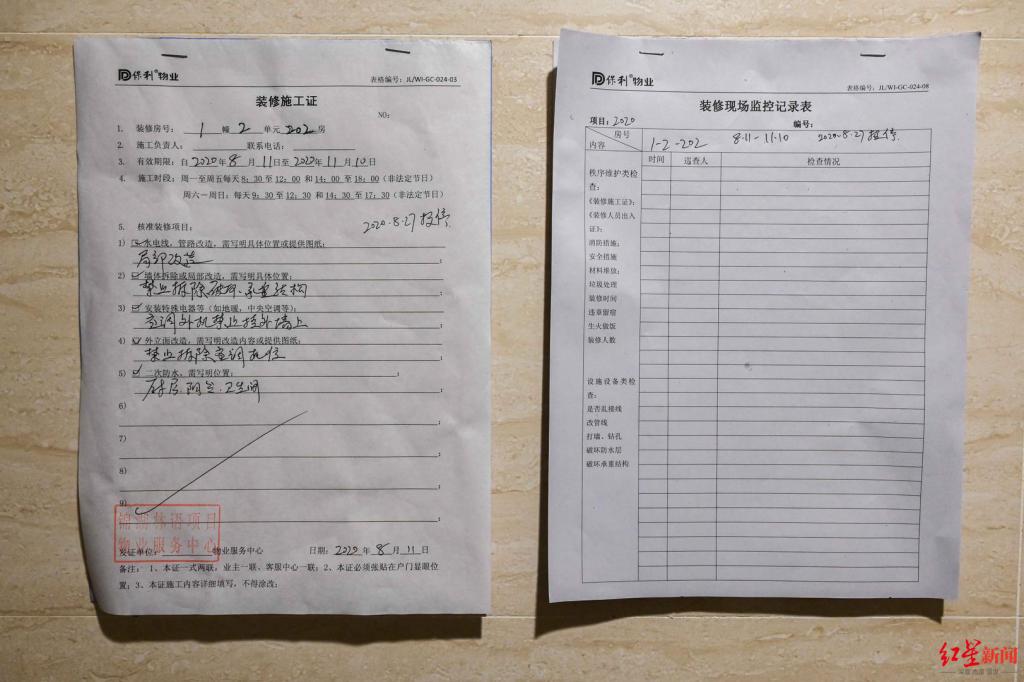 保利®物业
表格编号：JL/WI-GC-024-03
装修施工证
NO:
1. 装修房号： 1 幢 2 单元 202 房
2. 施工负责人： 联系电话：
3. 有效期限：自 2020 年 8 月 11 日至 2020 年 11 月 10 日
4. 施工时段：周一至周五每天 8：30 至 12：00 和 14：00 至 18：00（非法定节日）
周六一周日：每天 9：30 至 12：30 和 14：30 至 17：30（非法定节日）
2020.8.27 报停.
5. 核准装修项目：
1) ☑水电线，管路改造，需写明具体位置或提供图纸：
局部改造 ；
2) ☑墙体拆除或局部改造，需写明具体位置：
禁止拆除破坏承重结构 ；
3) ☑安装特殊电器等（如地暖，中央空调等）：
空调外机禁止挂外墙上 ；
4) ☑外立面改造，需写明改造内容或提供图纸：
禁止拆除空调机位 ；
5) ☑二次防水，需写明位置： ；
厨房.阳台.卫生间 ；
6)
；
7)
；
8)
；
9)
；
锦湖林语项目
物业服务中心
发证单位： 物业服务中心 日期：2020 年 8 月 11 日
备注： 1、本证一式两联，业主一联、客服中心一联；2、本证必须张贴在户门显眼位
置；3、本证施工内容详细填写，不得涂改；
保利®物业
表格编号：JL/WI-GC-024-08
装修现场监控记录表
项目：2020 编号：
房号
内容
1-2-202 8.11-11.10 2020.8.27报停.
时间 巡查人 检查情况
秩序维护类检
查：
《装修施工证》；
《装修人员出入
证》；
消防措施；
安全措施
材料堆放；
垃圾处理
装修时间
违章留宿
生火做饭
装修人数
设施设备类检
查：
是否乱接线
改管线
打墙、钻孔
破坏防水层
破坏承重结构
红星新闻